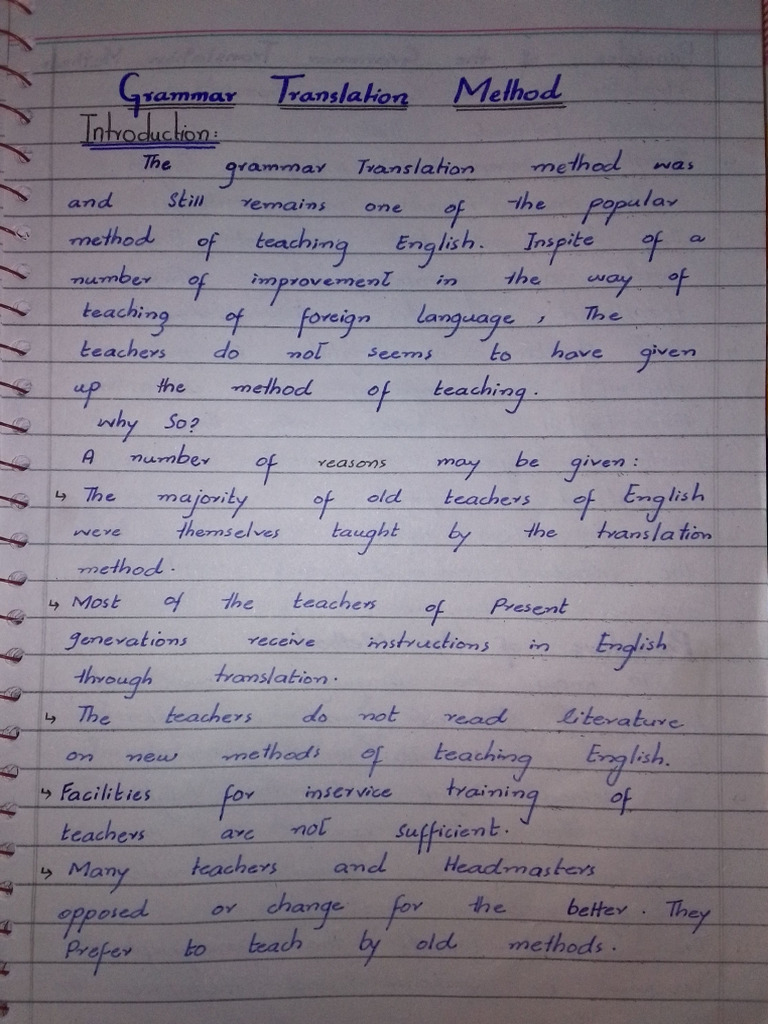 Grammar Translation Method
Introduction:
The grammar Translation method was
and still remains one of the popular
method of teaching English. Inspite of a
number of improvement in the way of
teaching of foreign language, The
teachers do not seems to have given
up the method of teaching.
why So?
A number of reasons may be given:
↳ The majority of old teachers of English
were themselves taught by the translation
method.
↳ Most of the teachers of Present
generations receive instructions in English
through translation.
↳ The teachers do not read literature
on new methods of teaching English.
↳ Facilities for inservice training of
teachers are not sufficient.
↳ Many teachers and Headmasters
opposed or change for the better. They
Prefer to teach by old methods.